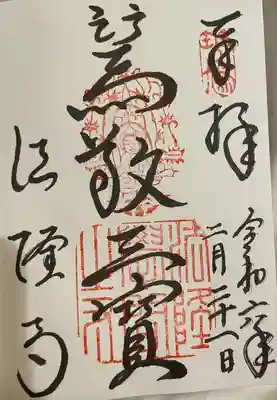 奉拝
令和六年
二月二十一日
篤敬三寶
法隆寺